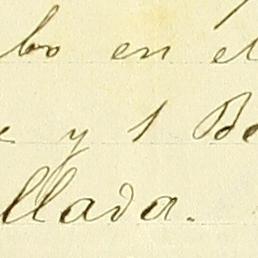 bo en el
e y 1 Be
llada.